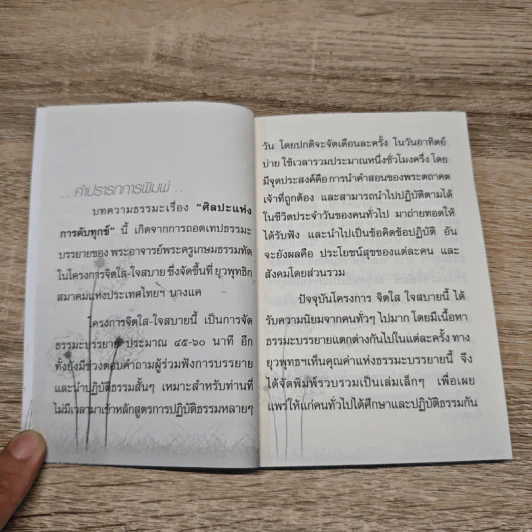 คำปรารภการพิมพ์
บทความธรรมะเรื่อง "ศิลปะแห่ง
การดับทุกข์" นี้ เกิดจากการถอดเทปธรรมะ
บรรยายของ พระอาจารย์พระครูเกษมธรรมทัต
ในโครงการจิตใส-ใจสบาย ซึ่งจัดขึ้นที่ ยุวพุทธิก
สมาคมแห่งประเทศไทยฯ บางแค
โครงการจิตใส-ใจสบายนี้ เป็นการจัด
ธรรมะบรรยาย ประมาณ ๔๕-๖๐ นาที อีก
ทั้งยังมีช่วงตอบคำถามผู้ร่วมฟังการบรรยาย
และนำปฏิบัติธรรมสั้นๆ เหมาะสำหรับท่านที่
ไม่มีเวลามาเข้าหลักสูตรการปฏิบัติธรรมหลายๆ
วัน โดยปกติจะจัดเดือนละครั้ง ในวันอาทิตย์
บ่าย ใช้เวลารวมประมาณหนึ่งชั่วโมงครึ่ง โดย
มีจุดประสงค์คือ การนำคำสอนของพระตถาคต
เจ้าที่ถูกต้อง และสามารถนำไปปฏิบัติตามได้
ในชีวิตประจำวันของคนทั่วไป มาถ่ายทอดให้
ได้รับฟัง และนำไปเป็นข้อคิดข้อปฏิบัติ อัน
จะยังผลคือ ประโยชน์สุขของแต่ละคน และ
สังคมโดยส่วนรวม
ปัจจุบันโครงการ จิตใส ใจสบาย นี้ ได้
รับความนิยมจากคนทั่วๆ ไปมาก โดยมีเนื้อหา
ธรรมะบรรยายแตกต่างกันไปในแต่ละครั้ง ทาง
ยุวพุทธฯเห็นคุณค่าแห่งธรรมะบรรยายนี้ จึง
ได้จัดพิมพ์รวบรวมเป็นเล่มเล็กๆ เพื่อเผย
แพร่ให้แก่คนทั่วไปได้ศึกษาและปฏิบัติธรรมกัน